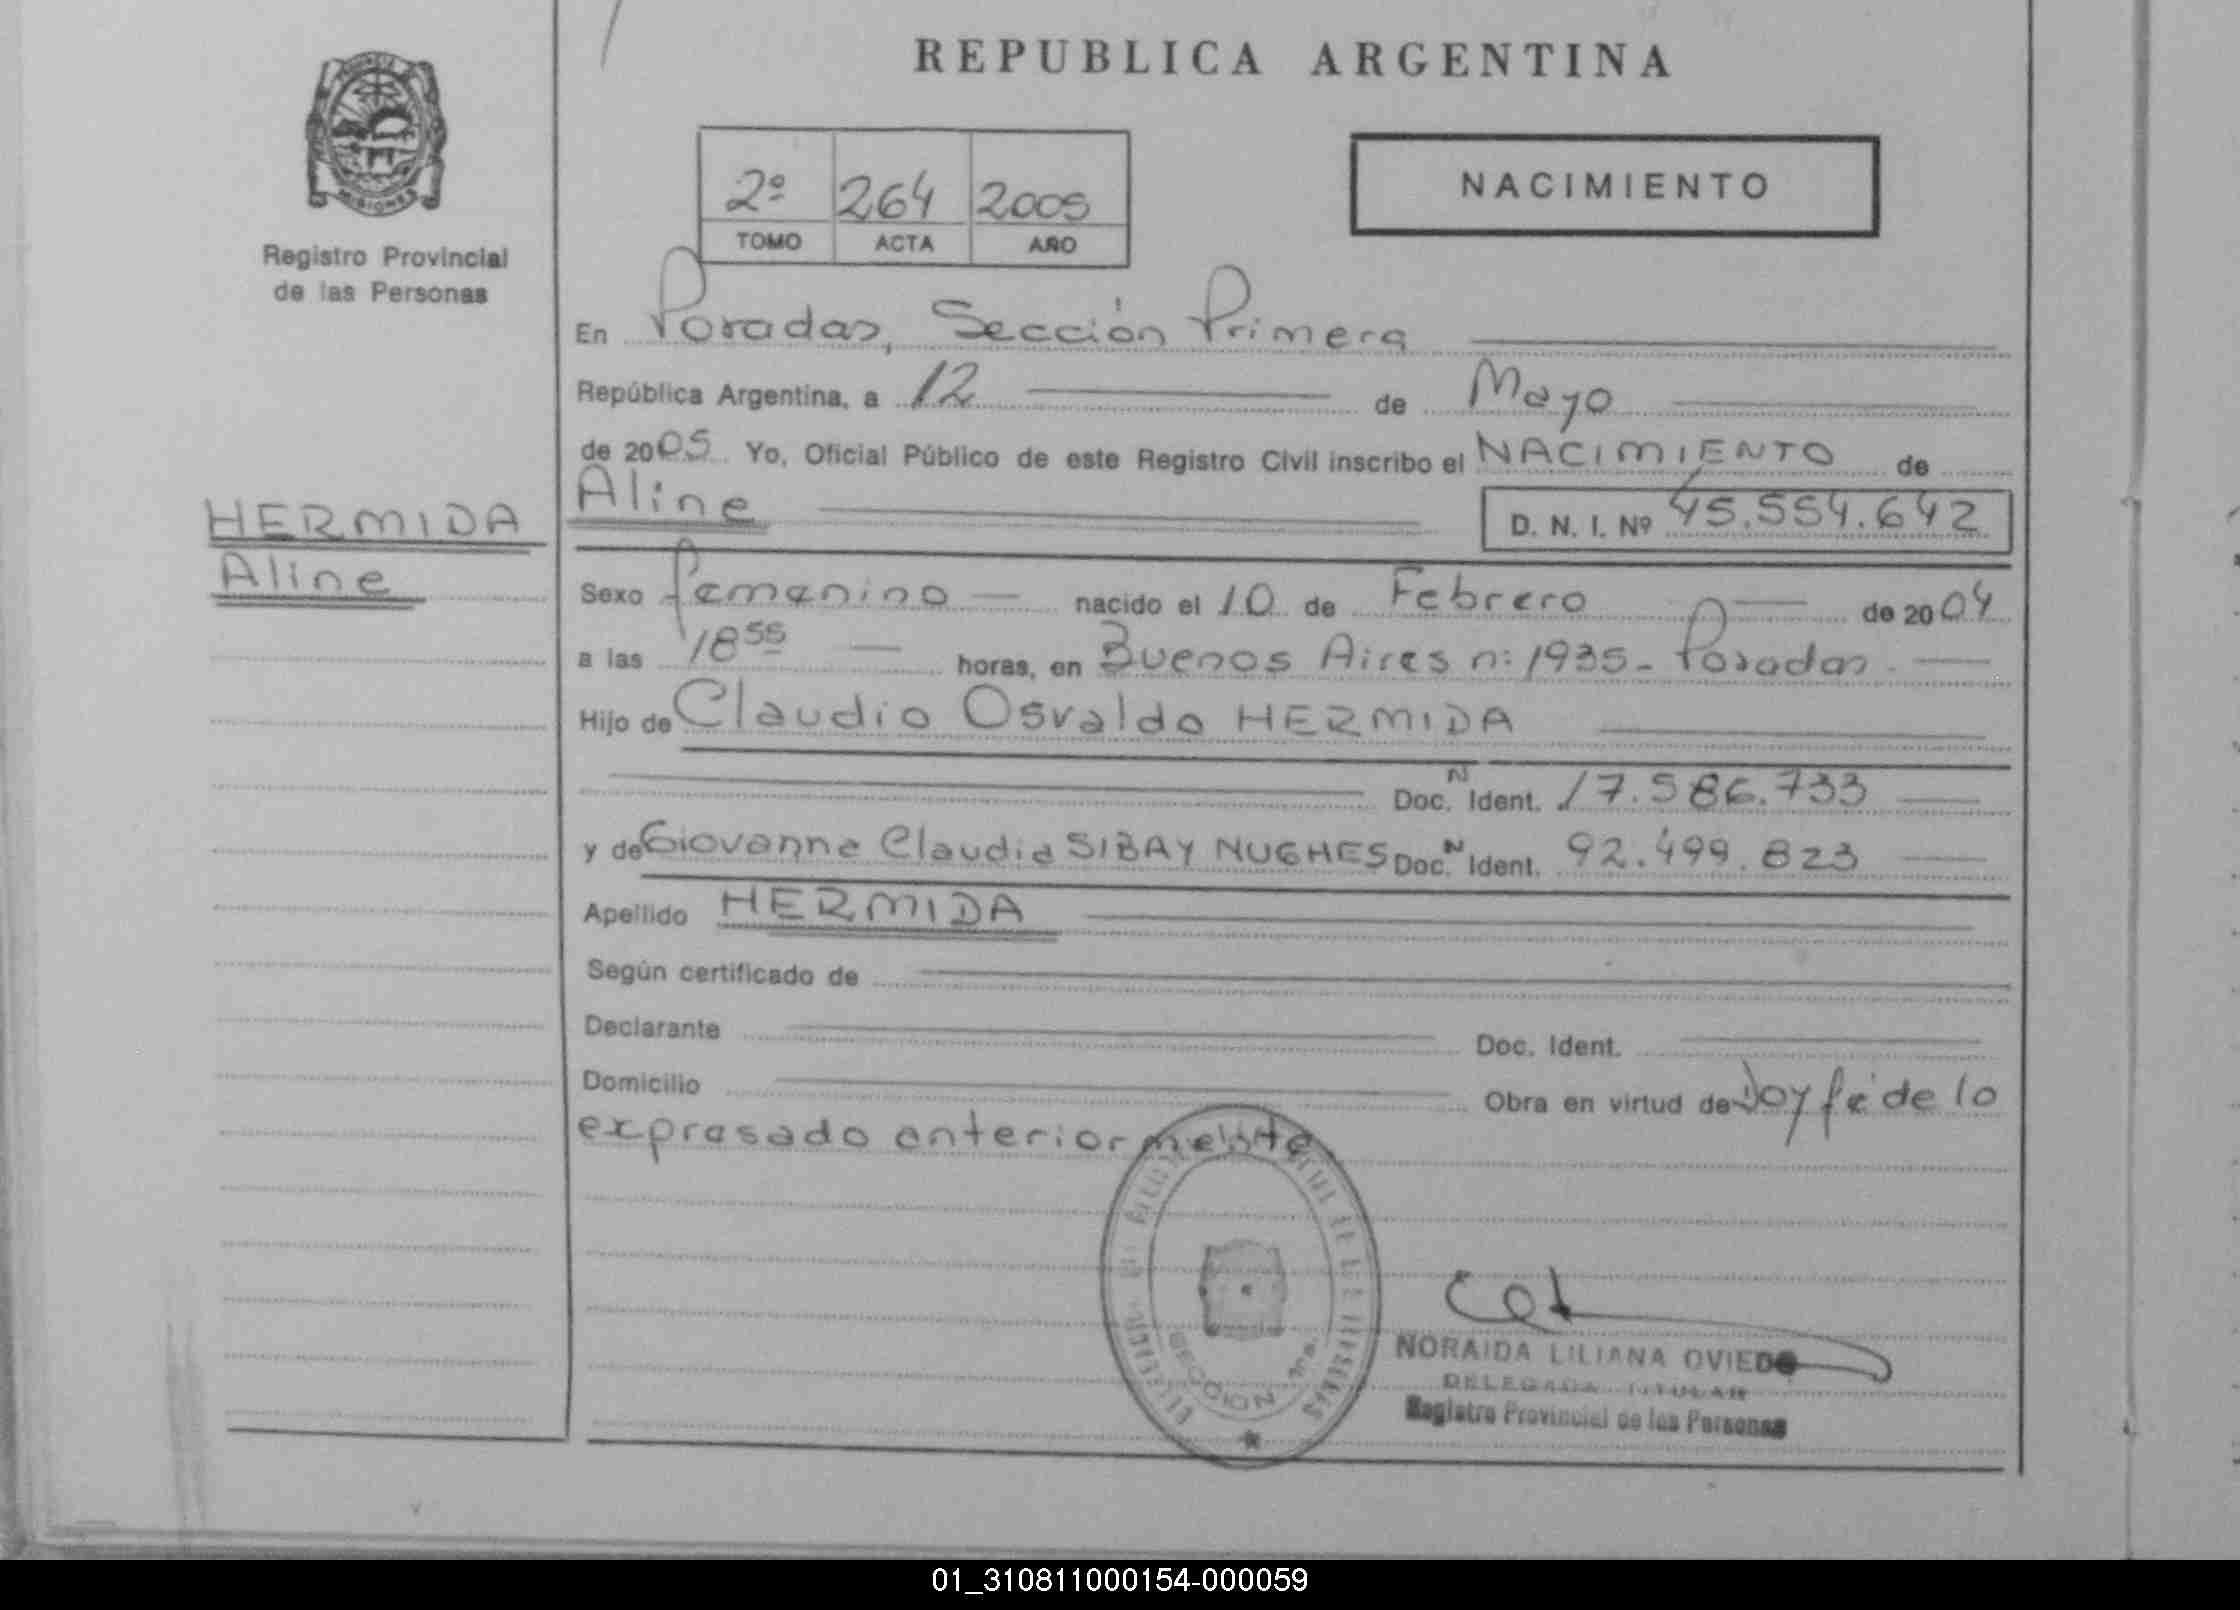 REPUBLICA ARGENTINA
PROVINCIA DE
MISIONES
Registro Provincial
de las Personas
2º 264 2005
TOMO ACTA AÑO
NACIMIENTO
En Posadas, Sección Primera
República Argentina, a 12 de Mayo
de 2005 Yo, Oficial Público de este Registro Civil inscribo el NACIMIENTO de
HERMIDA
Aline
Aline D. N. I. Nº 45.554.642
Sexo femenino nacido el 10 de Febrero de 2004
a las 18 55 horas, en Buenos Aires nº 1935 - Posadas
Hijo de Claudio Osvaldo HERMIDA
Doc. N Ident. 17.586.733
y de Giovanna Claudia SIBAY NUGHES Doc. N Ident. 92.499.823
Apellido HERMIDA
Según certificado de
Declarante Doc. Ident.
Domicilio Obra en virtud de Doy fé de lo
expresado anteriormente
SECCION 1ra.
NORAIDA LILIANA OVIEDO
DELEGADA TITULAR
Registro Provincial de las Personas
01_310811000154-000059